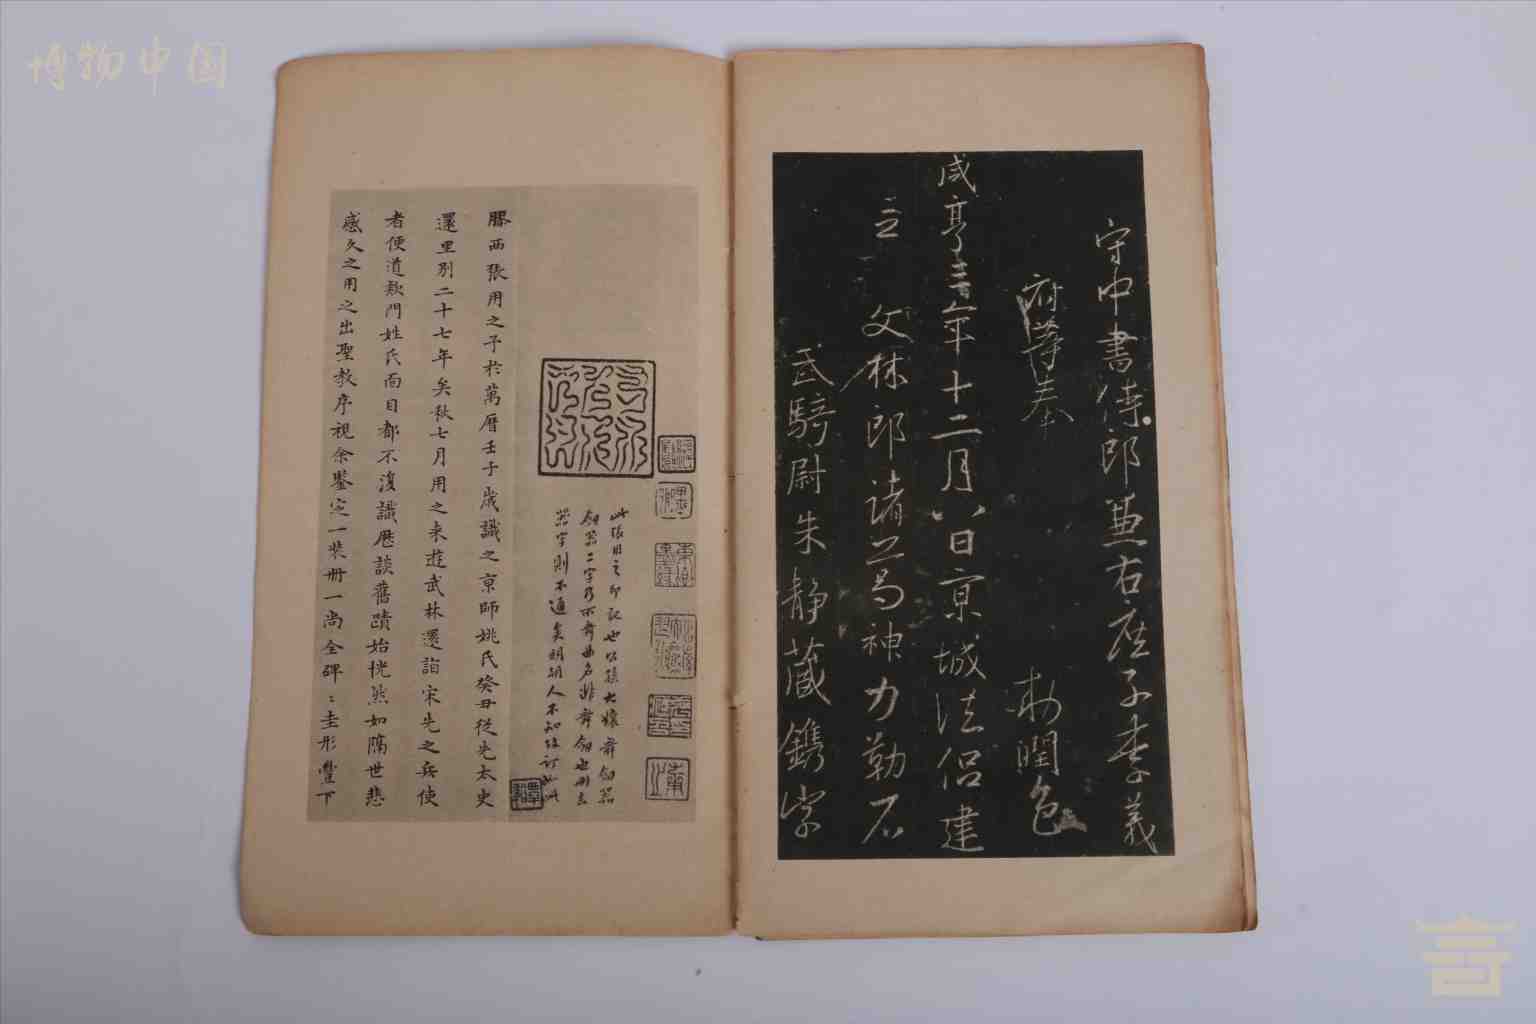 博物中国
守中書侍郎兼右庶子李義
府等奉
勅潤色
咸亨三年十二月八日京城法侶建
立
文林郎諸葛神力勒石
武騎尉朱静藏鐫字
此張用之印記也公孫大孃舞劍器
劍器二字乃所舞曲名非舞劍也刪去
器字則不通矣明朝人不知故訂
膠西張用之予於萬曆壬子歲識之京師姚氏癸丑從先太史
還里別二十七年矣秋七月用之来遊武林還詣宋先之兵使
者便道欵門姓氏面目都不復識歷談舊蹟始恍然如隔世悲
感久之用之出聖教序視余鑒定一装册一尚全碑：圭形豐下